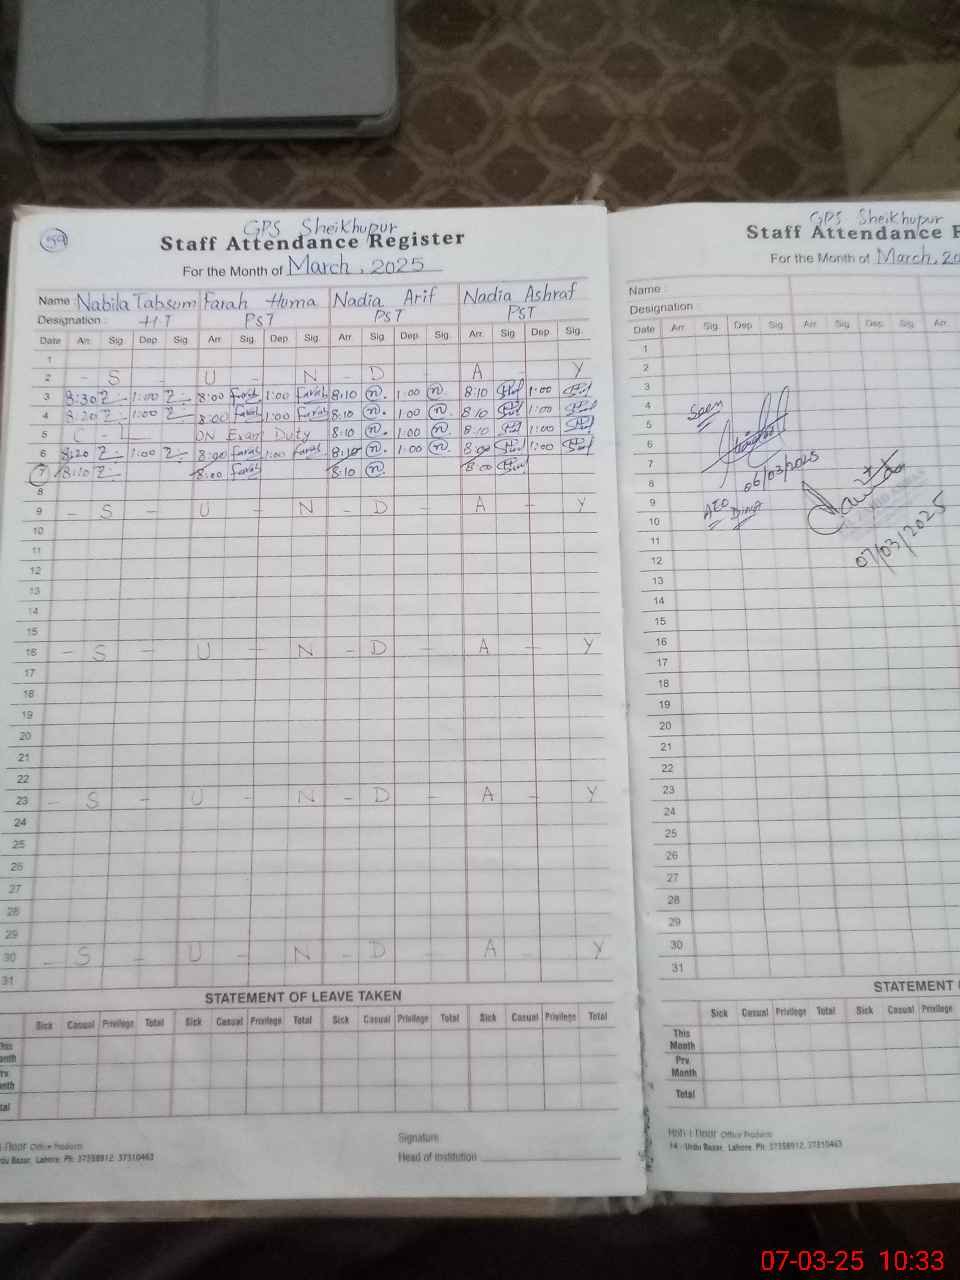 59
GPS Sheikhupur
Staff Attendance Register
For the Month of March, 2025
Name : Nabila Tabsum Farah Huma Nadia Arif Nadia Ashraf
Designation : H.T PST PST PST
Date Arr. Sig. Dep. Sig. Arr. Sig. Dep. Sig. Arr. Sig. Dep. Sig. Arr. Sig. Dep. Sig.
1
2 - S - U - N - D - A - Y
3 8:30 1:00 8:00 Farah 1:00 Farah 8:10 n. 1:00 n. 8:10 1:00
4 8:20 1:00 8:00 Farah 1:00 Farah 8:10 n. 1:00 n. 8:10 1:00
5 C - L ON Exam Duty 8:10 n. 1:00 n. 8:10 1:00
6 8:20 1:00 8:00 Farah 1:00 Farah 8:10 n. 1:00 n. 8:00 1:00
7 8:10 8:00 Farah 8:10 n. 8:00
8
9 - S - U - N - D - A - Y
10
11
12
13
14
15
16 - S - U - N - D - A - Y
17
18
19
20
21
22
23 - S - U - N - D - A - Y
24
25
26
27
28
29
30 - S - U - N - D - A - Y
31
STATEMENT OF LEAVE TAKEN
Sick Casual Privilege Total Sick Casual Privilege Total Sick Casual Privilege Total Sick Casual Privilege Total
Signature
Head of Institution
Floor Office Products
Bazar, Lahore. Ph: 37358912, 37310463
GPS Sheikhupur
Staff Attendance R
For the Month of March, 20
Name :
Designation :
Date Arr. Sig. Dep. Sig. Arr. Sig. Dep. Sig. Arr.
1
2
3
4
5
6
7
8
9
10
11
12
13
14
15
16
17
18
19
20
21
22
23
24
25
26
27
28
29
30
31
Seen
06/03/2025
AEO
07/03/2025
STATEMENT
Sick Casual Privilege Total Sick Casual Privilege
This Month
Prv. Month
Total
Floor Office Products
14 - Urdu Bazar, Lahore. Ph: 37358912, 37310463
07-03-25 10:33